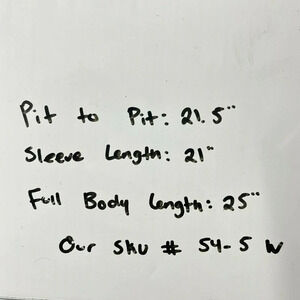 Pit to Pit: 21.5"
Sleeve Length: 21"
Full Body Length: 25"
Our SKU # 54-5 W